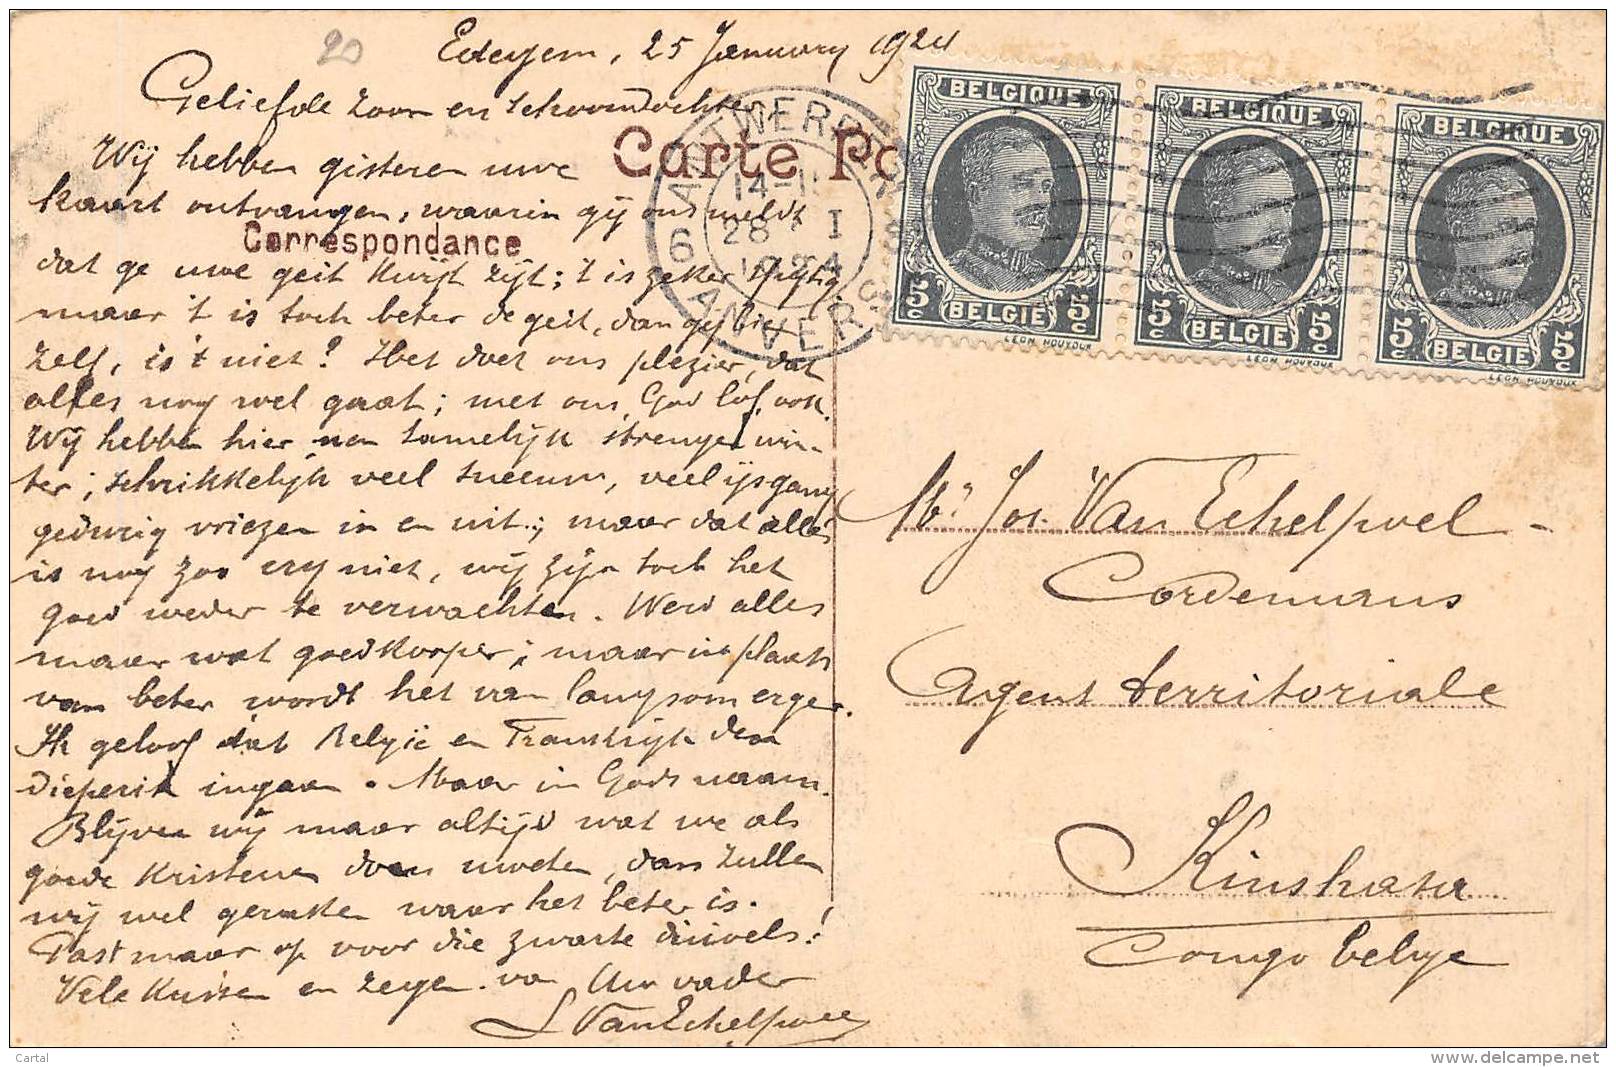 20
Edegem, 25 January 1924
Geliefde zoon en schoondochter
Wij hebben gisteren uwe
kaart ontvangen, waarin gij ons meldt
dat ge uwe geit kwijt zijt; 't is zeker spijtig,
maar 't is toch beter de geit, dan gij
zelf, is 't niet? Het doet ons plezier, dat
alles nog wel gaat; met ons, God lof, ook.
Wij hebben hier nen tamelijk strengen win-
ter; schrikkelijk veel sneeuw, veel ijsgang
gedurig vriezen in en uit; maar dat alles
is nog zoo erg niet, wij zijn toch het
goed weder te verwachten. Werd alles
maar wat goedkooper; maar in plaats
van beter, wordt het van langsom erger.
Ik geloof dat België en Frankrijk den
dieperik ingaan. Maar in Gods naam.
Blijven wij maar altijd wat we als
goede kristenen doen moeten, dan zullen
wij wel geraken waar het beter is.
Past maar op voor die zwarte duivels!
Vele kussen en zegen van Uw vader
L VanEchelpoel
Carte Po
Correspondance
ANTWERPEN
14-1
28 I
1924
6 ANVERS
BELGIQUE
5c BELGIE 5c
LEON HOUYOUX
BELGIQUE
5c BELGIE 5c
LEON HOUYOUX
BELGIQUE
5c BELGIE 5c
LEON HOUYOUX
Mr Jos. Van Echelpoel -
Cordemans
Agent territoriale
Kinshasa
Congo belge
Cartal
www.delcampe.net